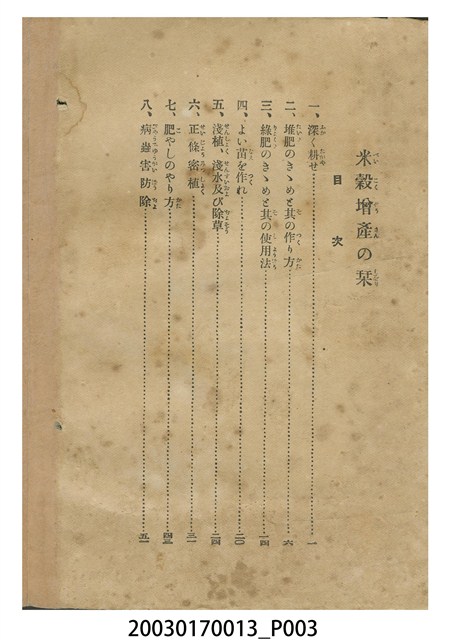 米穀增產の栞
目次
一、深く耕せ……一
二、堆肥のきゝめと其の作り方……六
三、綠肥のきゝめと其の使用法……一四
四、よい苗を作れ……二〇
五、淺植、淺水及び除草……二四
六、正條密植……三一
七、肥やしのやり方……四三
八、病蟲害防除……五一
20030170013_P003